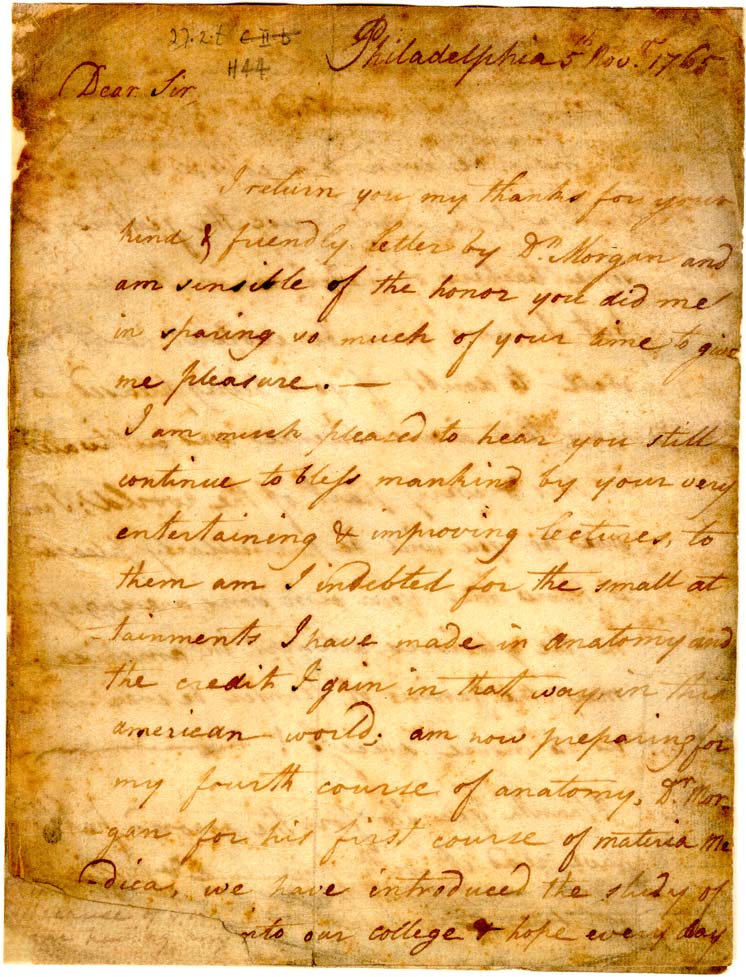 27.2.t C II b
H44
Philadelphia 5th Novr. 1765
Dear Sir,
I return you my thanks for your
kind & friendly letter by Dr. Morgan and
am sensible of the honor you did me
in sparing so much of your time to give
me pleasure. —
I am much pleased to hear you still
continue to bless mankind by your very
entertaining & improving lectures, to
them am I indebted for the small at
-tainments I have made in anatomy and
the credit I gain in that way in this
american world; am now preparing for
my fourth course of anatomy, Dr. Mor-
gan for his first course of materia Me
-dica, we have introduced the study of
into our college & hope every day